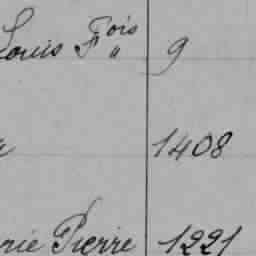 Louis Fois " 9
1408
Pierre 1221